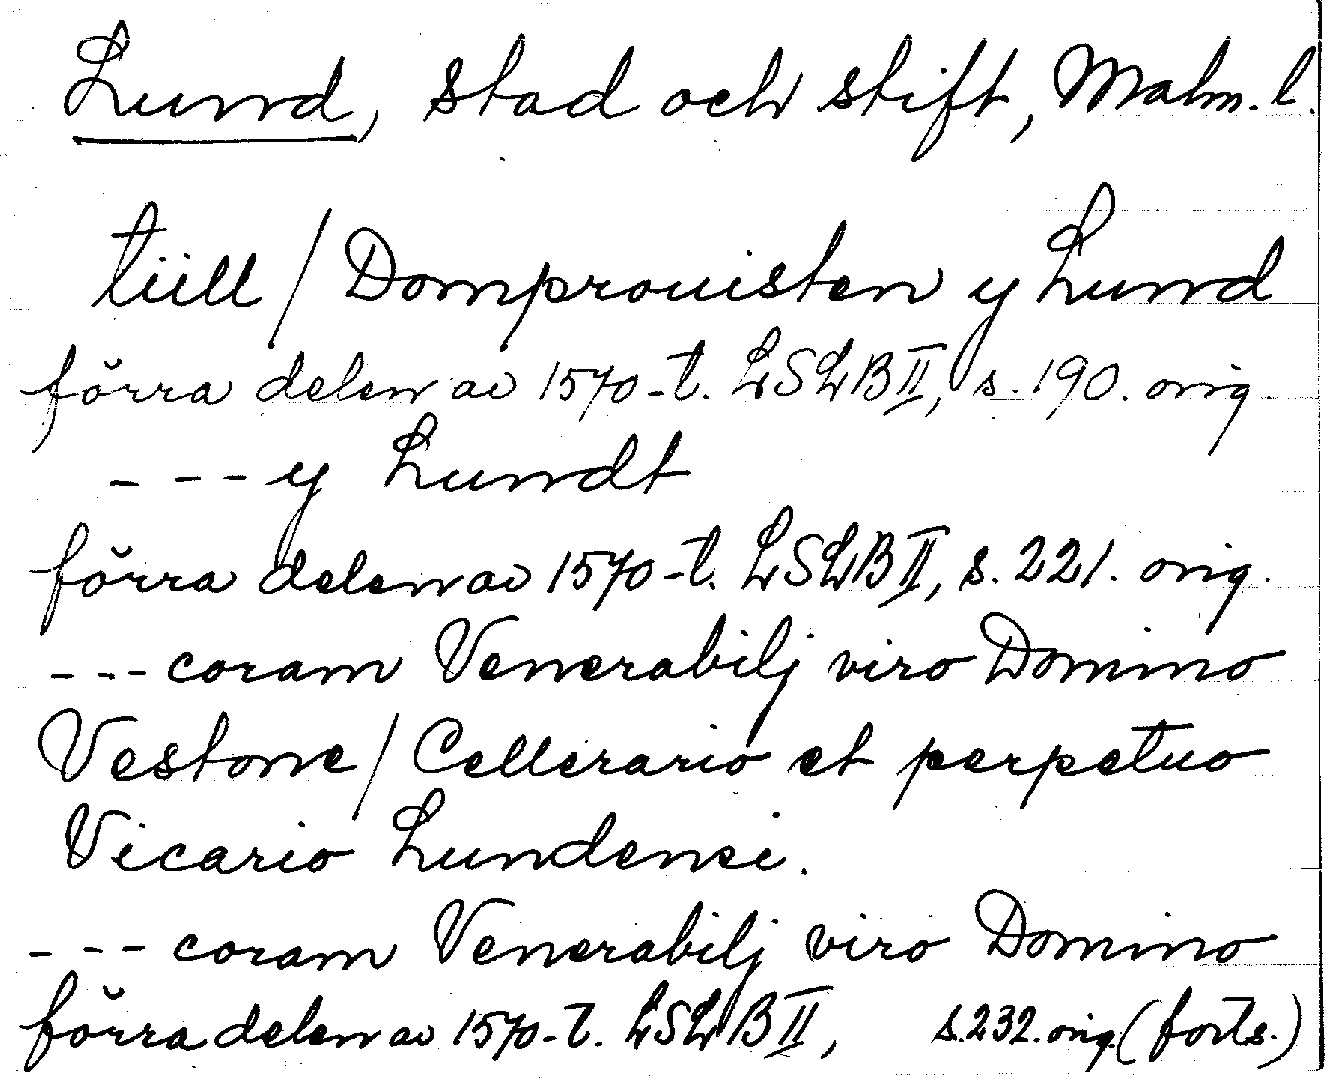 Lund, stad och stift, Malm. l.
tiill / Domprouisten y Lund
förra delen av 1570-t. LSLB II, s. 190. orig.
--- y Lundt
förra delen av 1570-t. LSLB II, s. 221. orig.
--- coram Venerabilj viro Domino
Vestone / Cellerario et perpetuo
Vicario Lundensi.
--- coram Venerabilj viro Domino
förra delen av 1570-t. LSLB II, s. 232. orig. (forts.)